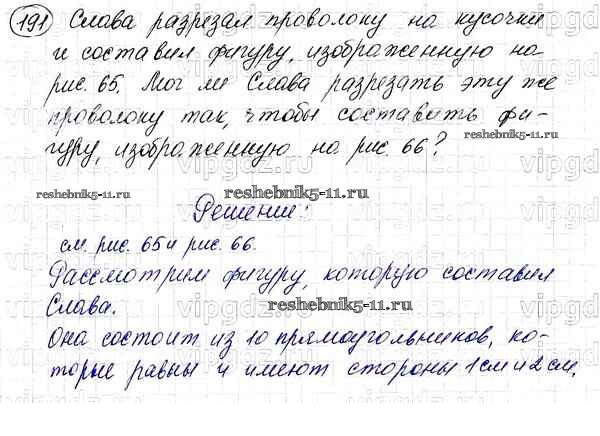 191 Слава разрезал проволоку на кусочки
и составил фигуру, изображенную на
рис. 65. Мог ли Слава разрезать эту же
проволоку так, чтобы составить фи-
гуру, изображенную на рис. 66?
reshebnik5-11.ru
reshebnik5-11.ru
reshebnik5-11.ru
Решение:
см. рис. 65 и рис. 66.
Рассмотрим фигуру, которую составил
Слава.
reshebnik5-11.ru
Она состоит из 10 прямоугольников, ко-
торые равны и имеют стороны 1 см и 2 см.